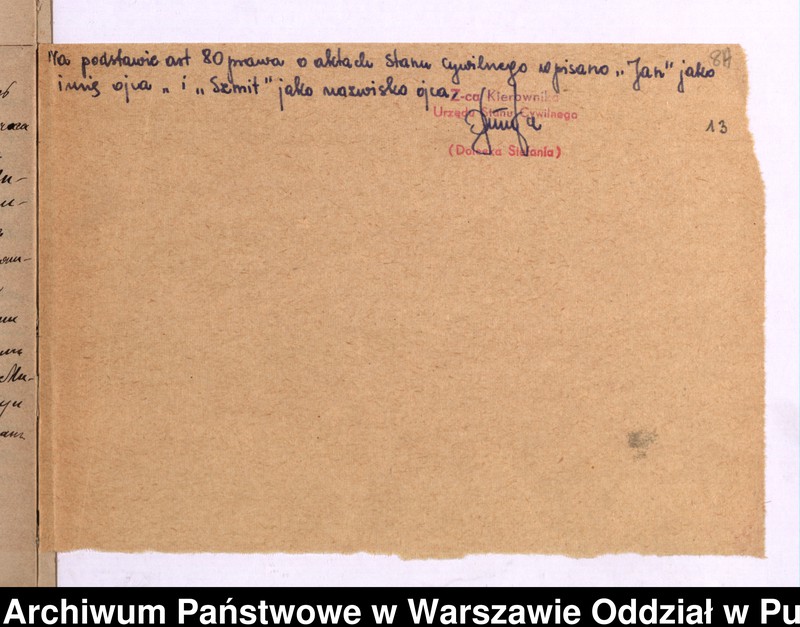 Na podstawie art 80 prawa o aktach stanu cywilnego wpisano „Jan" jako
imię ojca „ i „Szmit" jako nazwisko ojca.
Z-ca Kierownika
Urzędu Stanu Cywilnego
Stefania)
13
Archiwum Państwowe w Warszawie Oddział w Pu